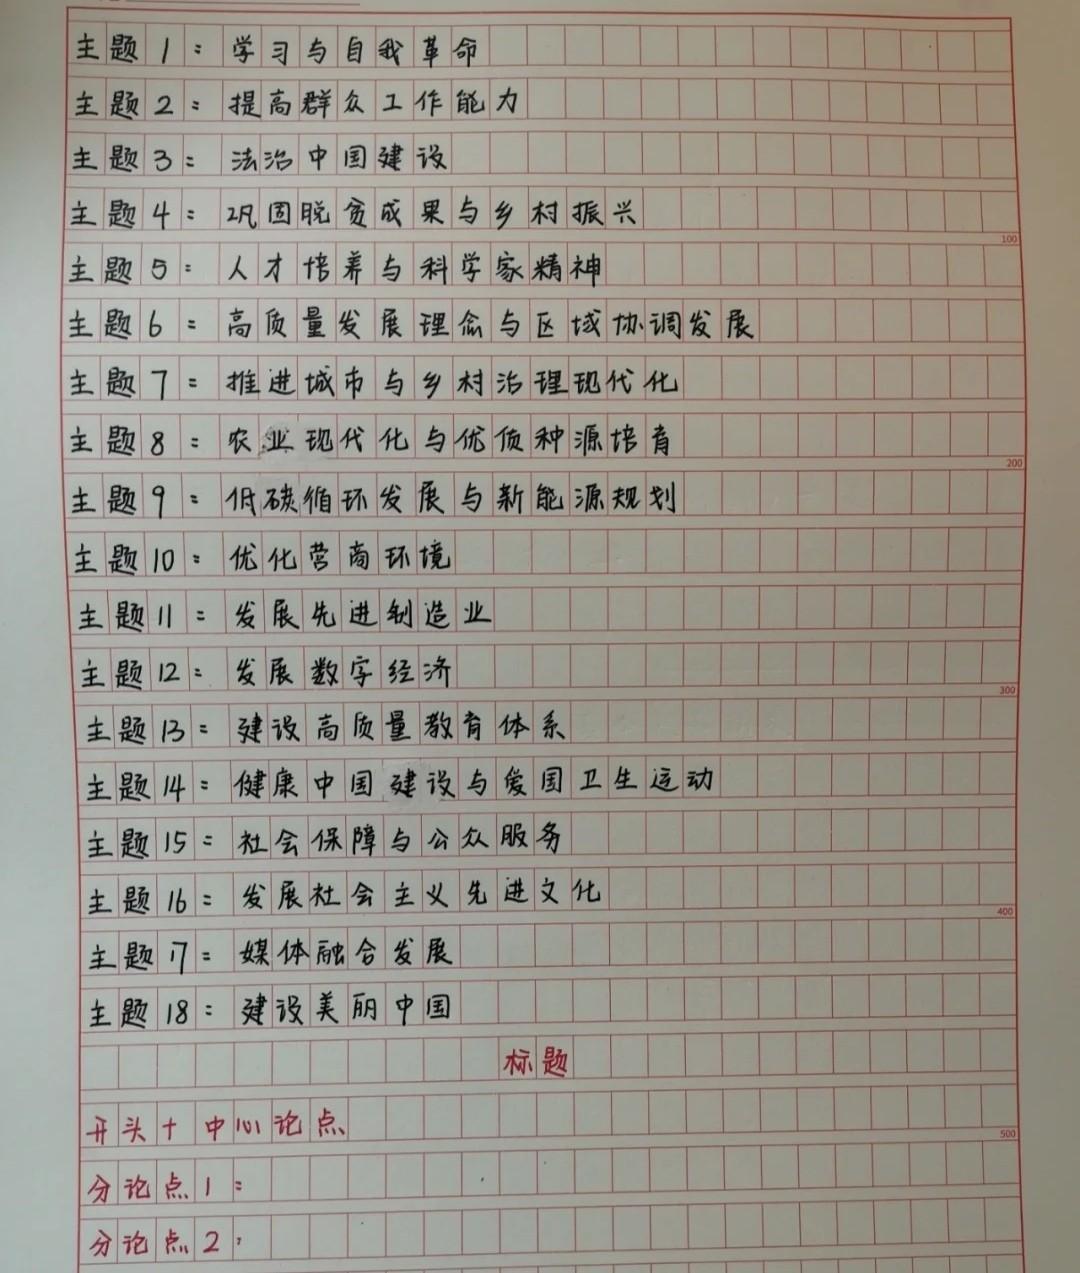 主题1：学习与自我革命
主题2：提高群众工作能力
主题3：法治中国建设
主题4：巩固脱贫成果与乡村振兴
100
主题5：人才培养与科学家精神
主题6：高质量发展理念与区域协调发展
主题7：推进城市与乡村治理现代化
主题8：农业现代化与优质种源培育
200
主题9：低碳循环发展与新能源规划
主题10：优化营商环境
主题11：发展先进制造业
主题12：发展数字经济
300
主题13：建设高质量教育体系
主题14：健康中国建设与爱国卫生运动
主题15：社会保障与公众服务
主题16：发展社会主义先进文化
400
主题17：媒体融合发展
主题18：建设美丽中国
标题
开头+中心论点
500
分论点1：
分论点2：